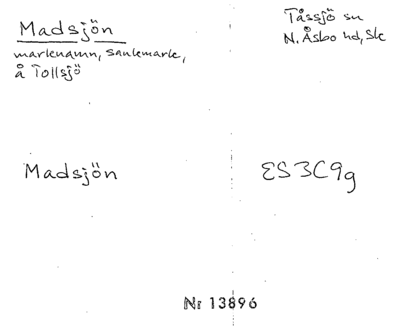 Madsjön
marknamn, sankmark,
å Tollsjö
Tåssjö sn
N. Åsbo hd, Sk
Madsjön
ES 3C9g
Nr 13896